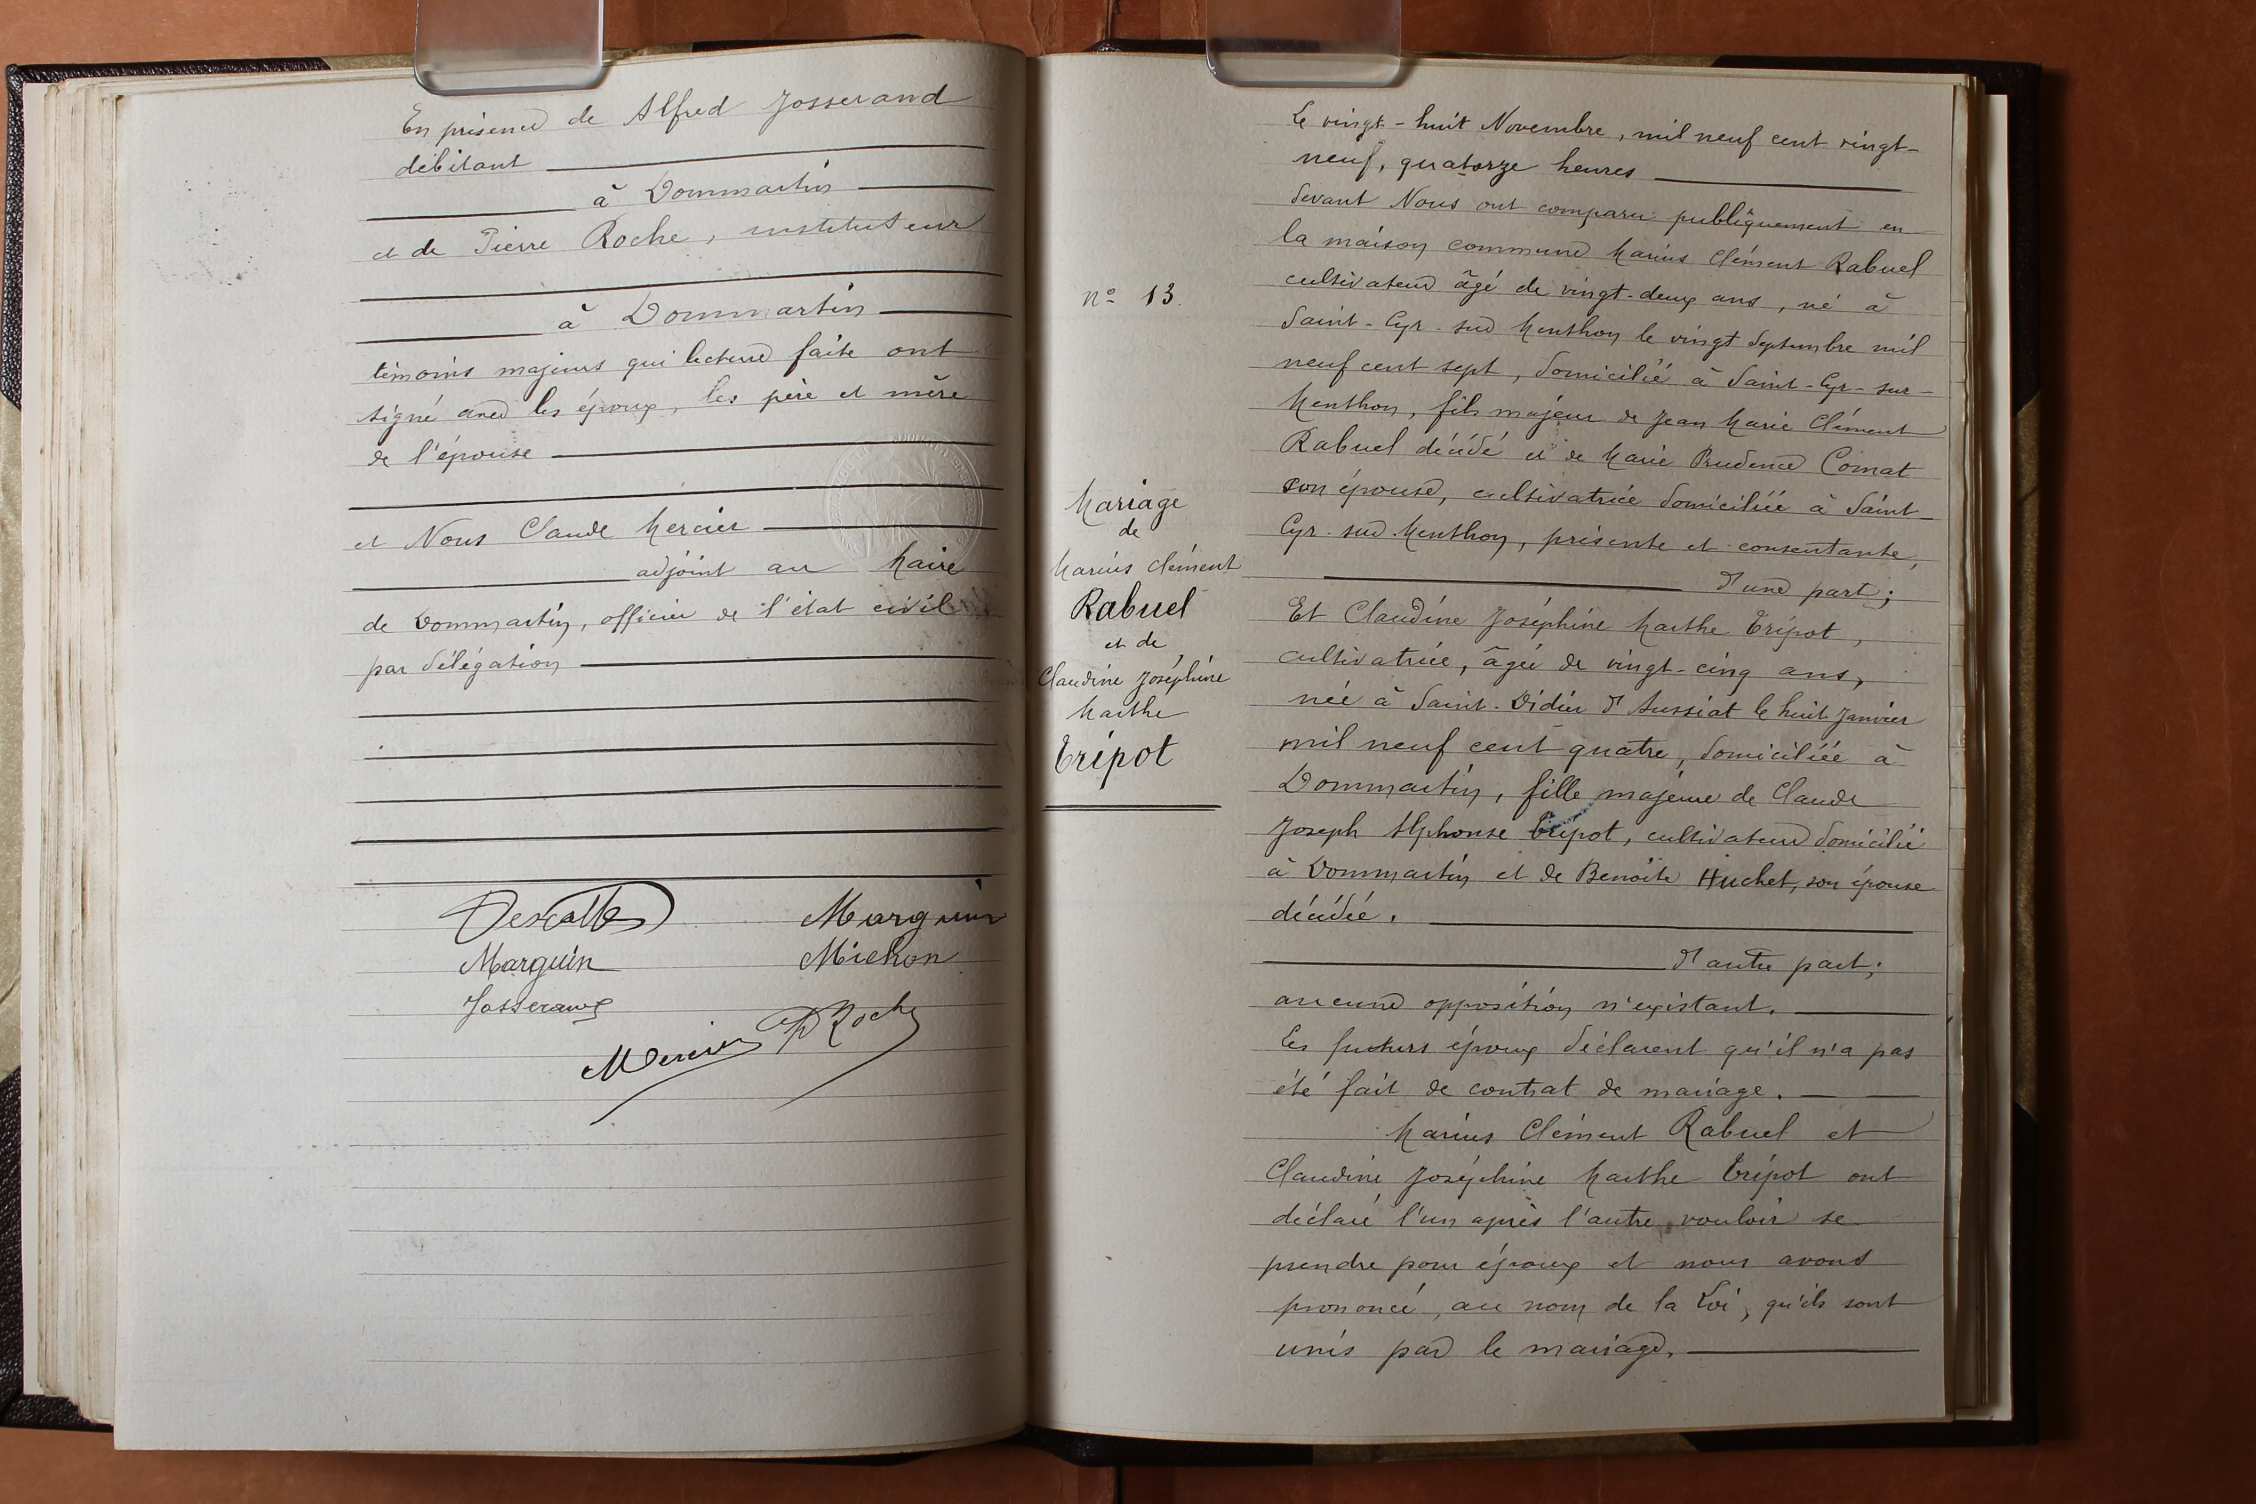 En présence de Alfred Josserand
débitant
à Dommartin
et de Pierre Roche, instituteur
à Dommartin
témoins majeurs qui lecture faite ont
signé avec les époux, les père et mère
de l'épouse
et Nous Claude Mercier
adjoint au Maire
de Dommartin, officier de l'état civil
par délégation
Descottes Marguin
Marguin Michon
Josserand
Mercier P Roche
Le vingt-huit Novembre, mil neuf cent vingt-
neuf, quatorze heures
devant Nous ont comparu publiquement en
la maison commune Marius Clément Rabuel
cultivateur âgé de vingt-deux ans, né à
Saint-Cyr-sur Menthon le vingt Septembre mil
neuf cent sept, domicilié à Saint-Cyr-sur-
Menthon, fils majeur de Jean Marie Clément
Rabuel décédé et de Marie Prudence Comat
son épouse, cultivatrice domiciliée à Saint
Cyr-sur-Menthon, présente et consentante,
d'une part;
Et Claudine Joséphine Marthe Tripot,
cultivatrice, âgée de vingt-cinq ans,
née à Saint-Didier d'Aussiat le huit Janvier
mil neuf cent quatre, domiciliée à
Dommartin, fille majeure de Claude
Joseph Alphonse Tripot, cultivateur domicilié
à Dommartin et de Benoîte Huchet, son épouse
décédée.
d'autre part;
aucune opposition n'existant.
Les futurs époux déclarent qu'il n'a pas
été fait de contrat de mariage.
Marius Clément Rabuel et
Claudine Joséphine Marthe Tripot ont
déclaré l'un après l'autre vouloir se
prendre pour époux et nous avons
prononcé, au nom de la Loi, qu'ils sont
unis par le mariage.
nº 13.
Mariage
de
Marius Clément
Rabuel
et de
Claudine Joséphine
Marthe
Tripot